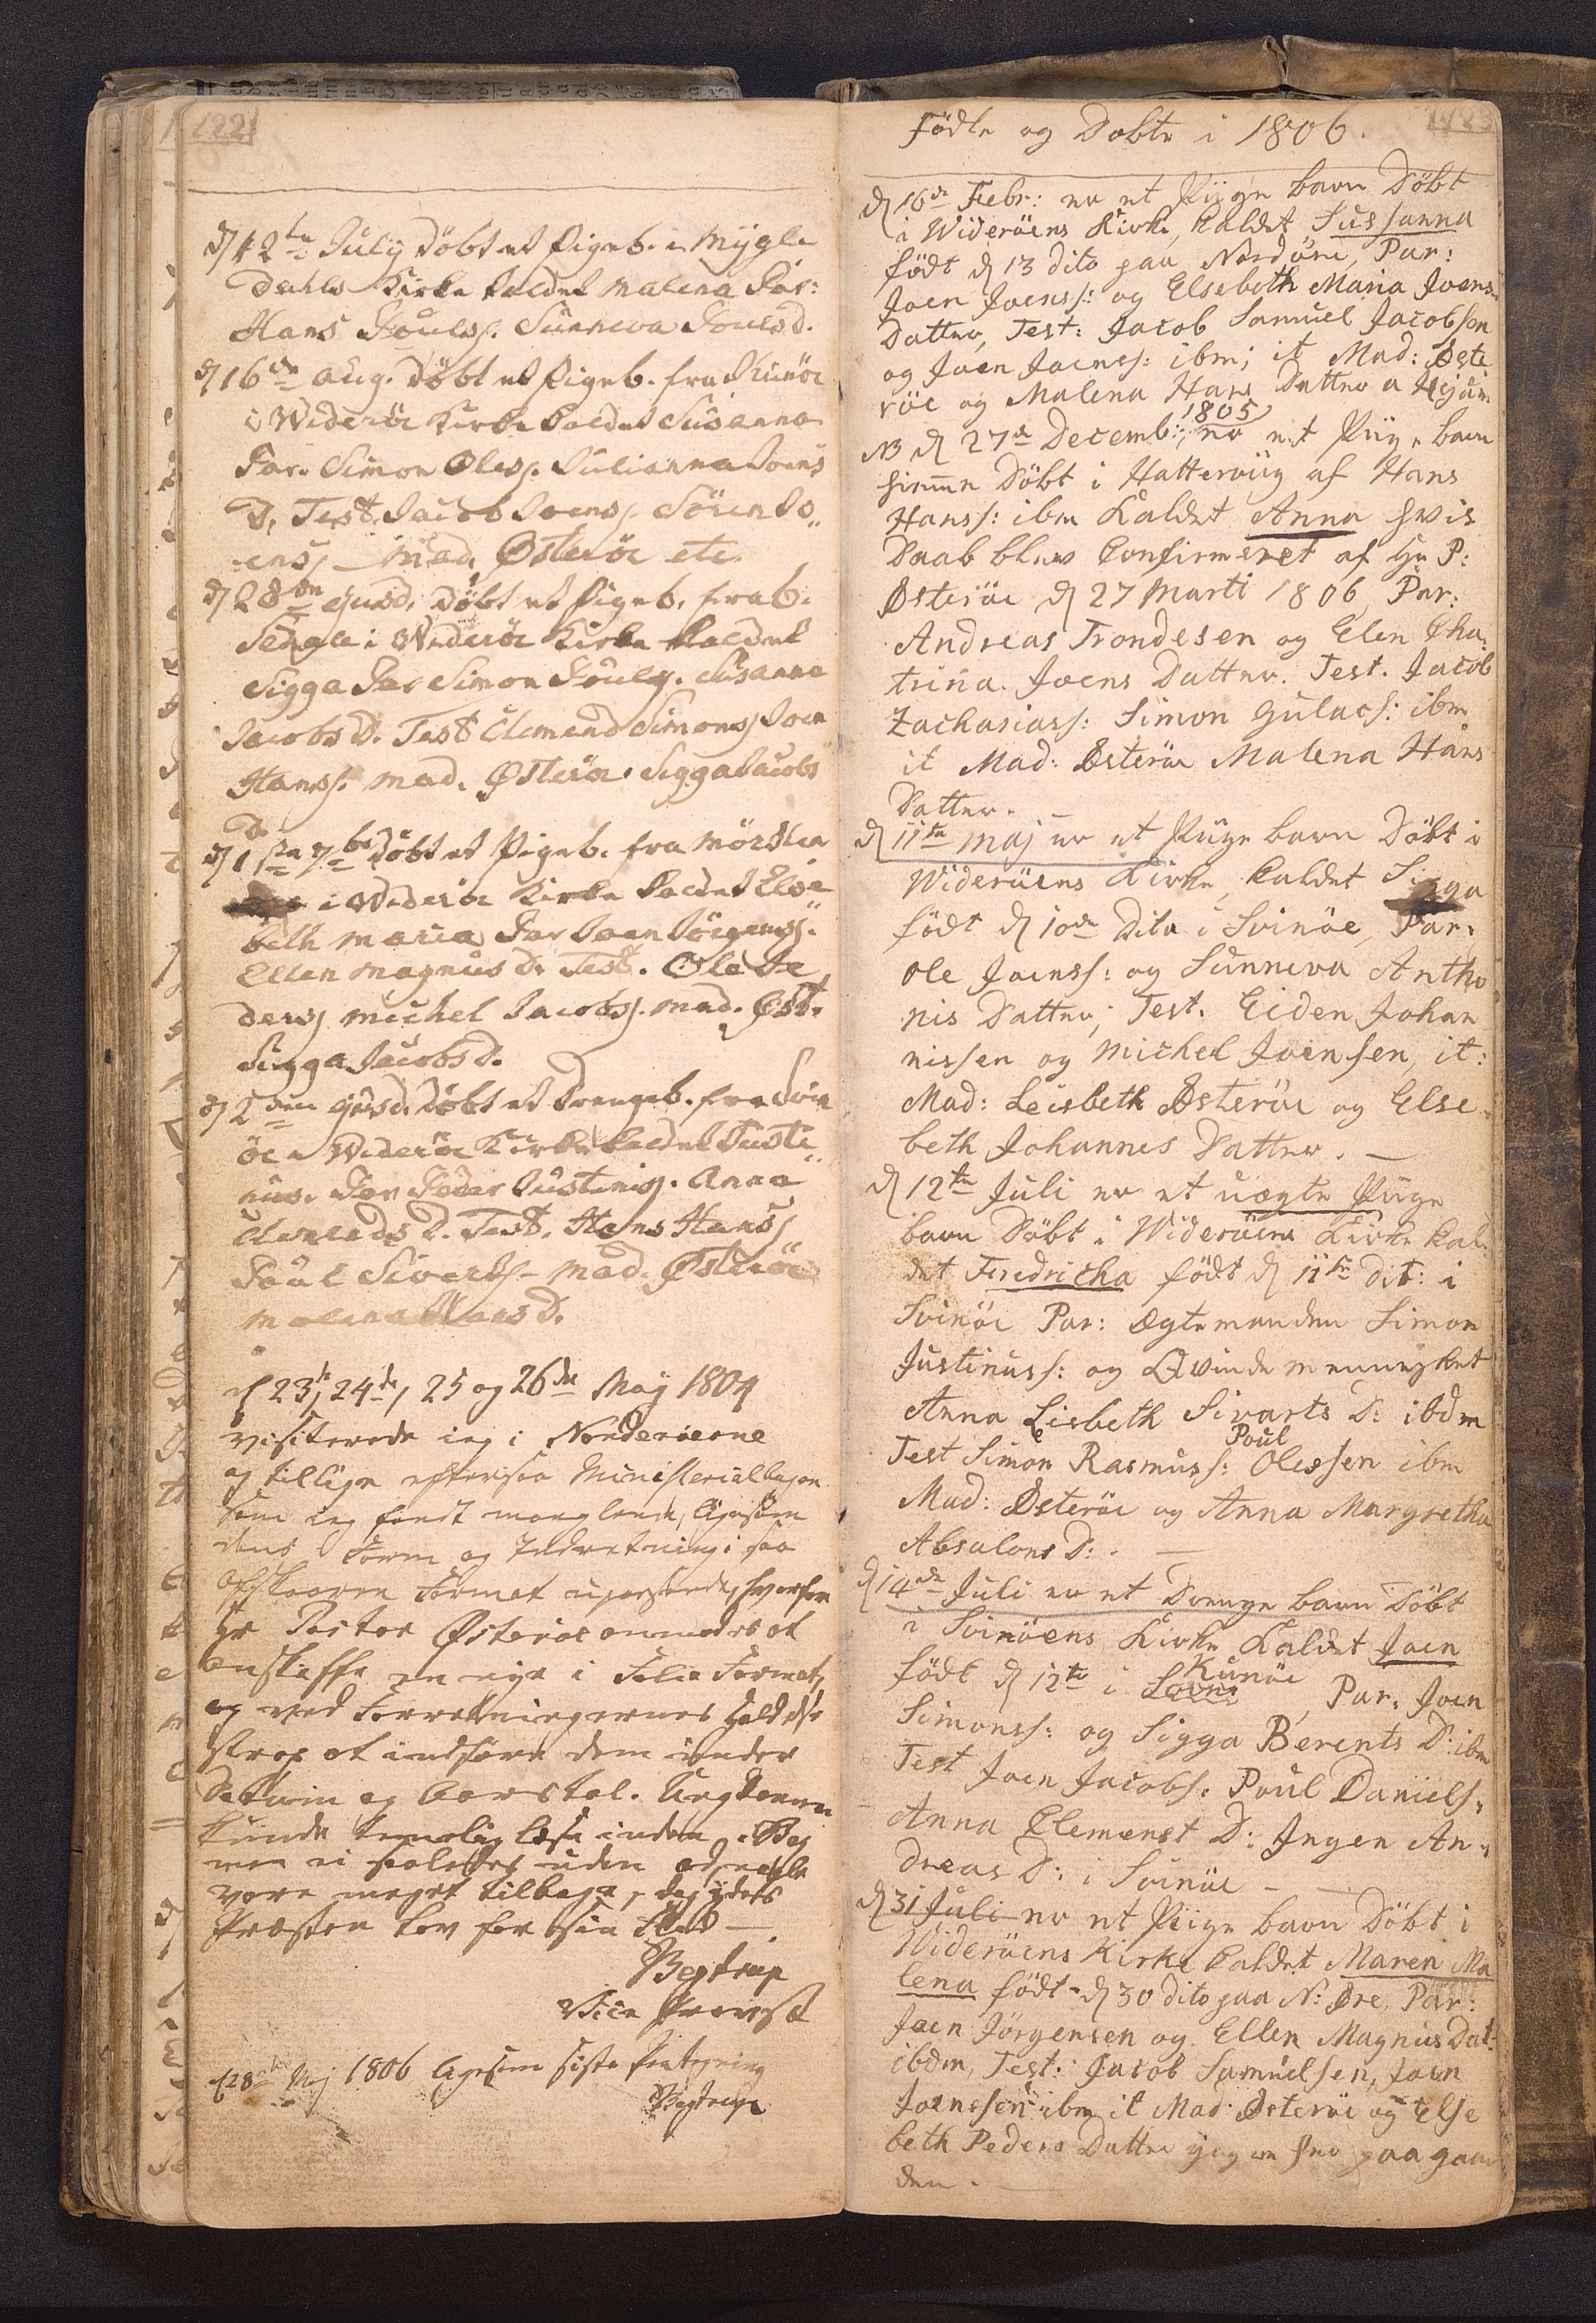 122
d 12te July döbt et Pigeb. i Mygle
dahls Kirke kaldet Malena Par:
Hans Poulss. Sunneva Poulsd.
d 16de aug. döbt et Pigeb. fra Kunöe
i Wideröe Kirke kaldet Susanna
Par. Simon Oless. Julianna Joens
D. Test. Jacob Joenss. Sören Jo„
enss Mad. Österöe etc.
d 28de ejusd. döbt et Pigeb. fra b.
i Wideröe Kirke kaldet
Sigga Par Simon Poulss. Susanne
Jacobs D. Test Clemend Simonss Joen
Hanss. Mad. Österöe. Sigga Jacobs
D.
d 1ste 7br döbt et Pigeb. fra
i Wideröe Kirke kaldet Else
beth Maria Par Joen Jörgenss.
Ellen Magnus D. Test. Ole Pe
derss Michel Jacobss. Mad. Öst.
Sigga Jacobs D.
d 2den ejusd. döbt et Drengeb. fra Svin
öe i Wideröe Kirke kaldet Justi„
nus. Par Peder Justiniss. Anna
D. Test. Hans Hanss
Paul Sivertss. Mad. Österöe
Malena Hans D.
d 23de, 24de, 25 og 26de Maj 1804
visiterede jeg i Norderöerne
og tillige eftersaae Ministerialbogen
som jeg fandt manglende, ligesom
dens Form og Indretning i saa
Formet upassende, hvorfor
Hr Pastor Österöe anmodes at
anskaffe en nye i Folio Format,
og ved Forretningernes Holdelse
strax at indföre dem under
Datum og Aarstal. Ungdommen
kunde temmelig læse inden i Bog
men ei saaledes uden ad, nogle
vare meget tilbage, dog ydes
Præsten Lov for sin Flid —
Bestrup
Vice Provst
d 28de Maj 1806 ligesom sidste Paategning
Bestrup
Födte og Döbte i 1806.
d 16de Febr: er et Piige barn Döbt
i Wideröens Kirke, kaldet Sussanna
födt d 13 dito paa Nordöre, Par:
Joen Joenss: og Elsebeth Maria Joens
Datter, Test: Jacob Samuel Jacobsen
og Joen Joenss: ibm; it Mad: Öste
röe og Malena Hans Datter a
1805
NB d 27de Decemb:, er et Piige barn
hiemme Döbt i Hattervüg af Hans
Hanss: ibm kaldet Anna hvis
Daab blev Confirmeret af Hr P:
Österöe d 27 Marti 1806, Par:
Andreas Trondesen og Elen Cha
trina Joens Datter. Test. Jacob
Zachariass: Simon Gulacs: ibm
it Mad: Österöe Malena Hans
Datter.
d 11te Maj er et Piige barn Döbt i
Wideröens Kirke, kaldet Sigga
födt d 10de Dito i Svinöe, Par:
Ole Joenss: og Sunneva Antho
nis Datter, Test. Eiden Johan
nissen og Michel Joensen, it:
Mad: Leisbeth Österöe og Else
beth Johannes Datter. —
d 12te Juli er et uægte Piige
barn Döbt i Wideröens Kirke kal
det Fredricha födt d 11te dit: i
Svinöe Par: Ægtemanden Simon
Justinuss: og Qvindemennisket
Anna Lisbeth Sivarts D: ibdm
Poul
Test Simon Rasmuss: Olessen ibm
Mad: Österöe og Anna Margretha
Absalons D: . —
d 14de Juli er et Drenge barn Döbt
i Svinöens Kirke kaldet Joen
Kunöe
födt d 12te i , Par: Joen
Simonss: og Sigga Berents D: ibm
Test Joen Jacobs: Poul Daniels:
Anna Clement D: Ingen An„
dreas D: i Svinöe —
d 31 Juli er et Piige barn Döbt i
Wideröens Kirke kaldet Maren Ma
lena födt d 30 dito paa N: Öre, Par:
Joen Jörgensen og Ellen Magnus Dat:
ibdm, Test: Jacob Samuelsen, Joen
Joenssen ibm it Mad: Österöe og Else
beth Peders Datter her paa gaar
den.